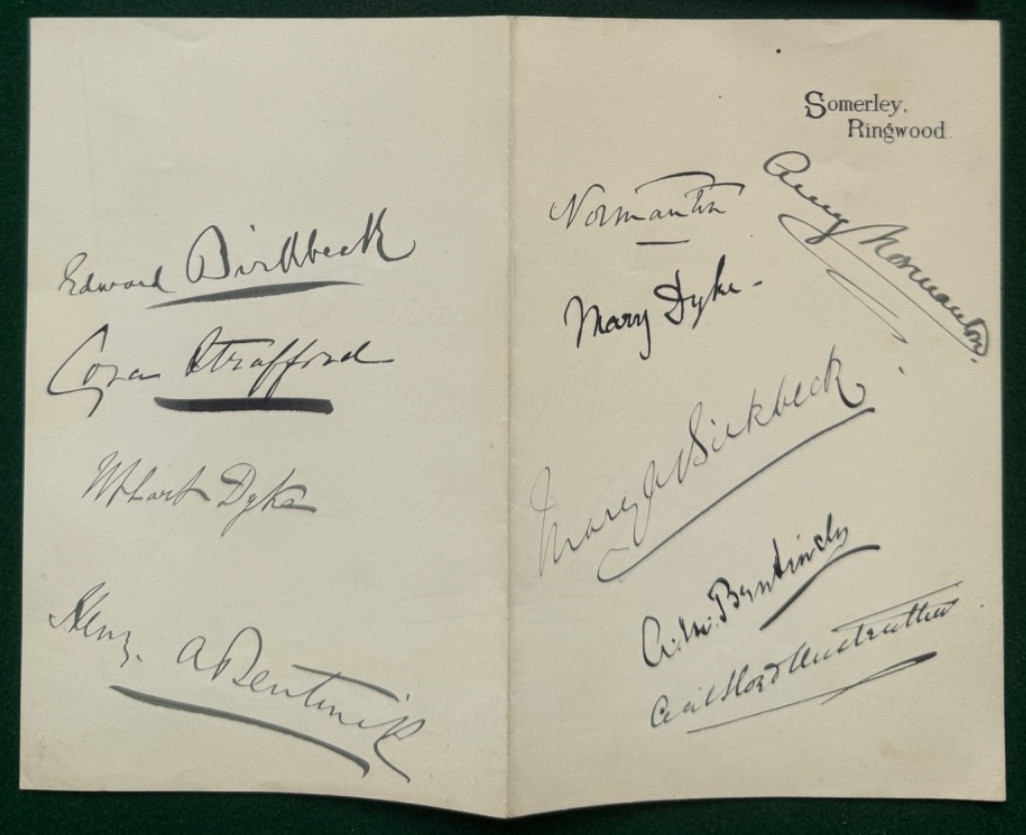 Edward Birkbeck
Cora Strafford
Wm Hart Dyke
Henry A Bentinck
Somerley,
Ringwood
Normanton
Amy Normanton.
Mary Dyke -
Mary J Birkbeck
Bentinck
Cecil Lloyd Anstruther